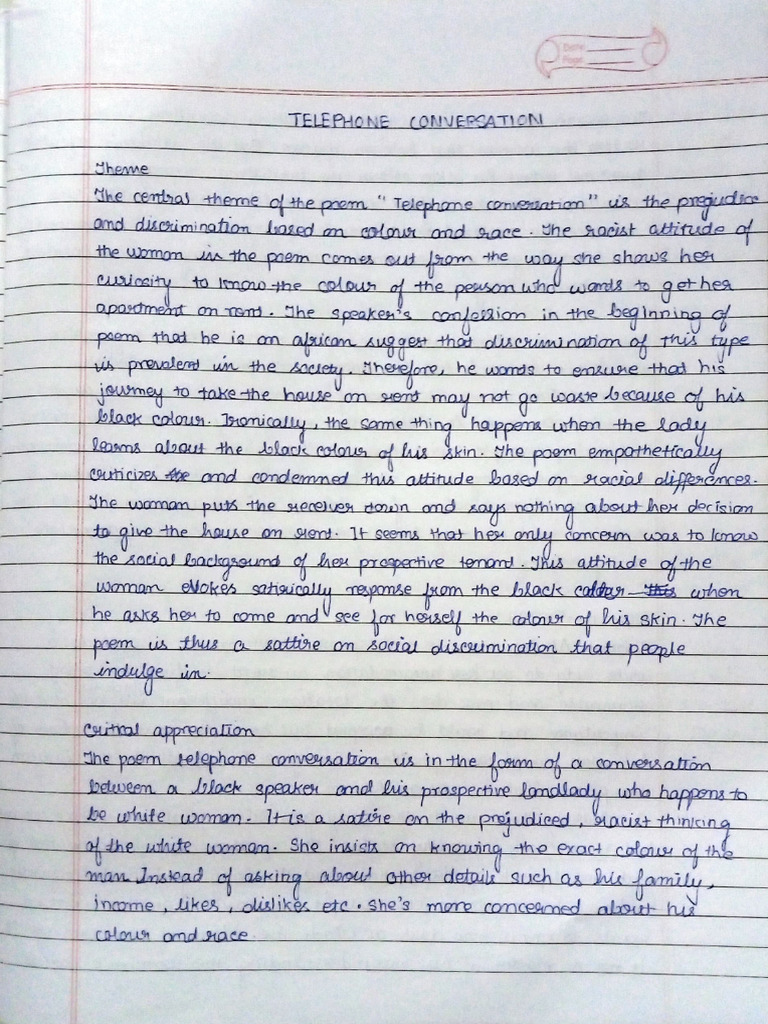 Date
Page
TELEPHONE CONVERSATION
Theme
The central theme of the poem "Telephone conversation" is the prejudice
and discrimination based on colour and race. The racist attitude of
the woman in the poem comes out from the way she shows her
curiosity to know the colour of the person who wants to get her
apartment on rent. The speaker's confession in the beginning of
poem that he is an african suggest that discrimination of this type
is prevalent in the society. Therefore, he wants to ensure that his
journey to take the house on rent may not go waste because of his
black colour. Ironically, the same thing happens when the lady
learns about the black colour of his skin. The poem empathetically
criticizes the and condemned this attitude based on racial differences.
The woman puts the receiver down and says nothing about her decision
to give the house on rent. It seems that her only concern was to know
the social background of her prospective tenant. This attitude of the
woman evokes satirically response from the black when
he asks her to come and see for herself the colour of his skin. The
poem is thus a sattire on social discrimination that people
indulge in.
Critical appreciation
The poem telephone conversation is in the form of a conversation
between a black speaker and his prospective landlady who happens to
be white woman. It is a satire on the prejudiced, racist thinking
of the white woman. She insists on knowing the exact colour of the
man Instead of asking about other details such as his family,
income, likes, dislikes etc. She's more concerned about his
colour and race.